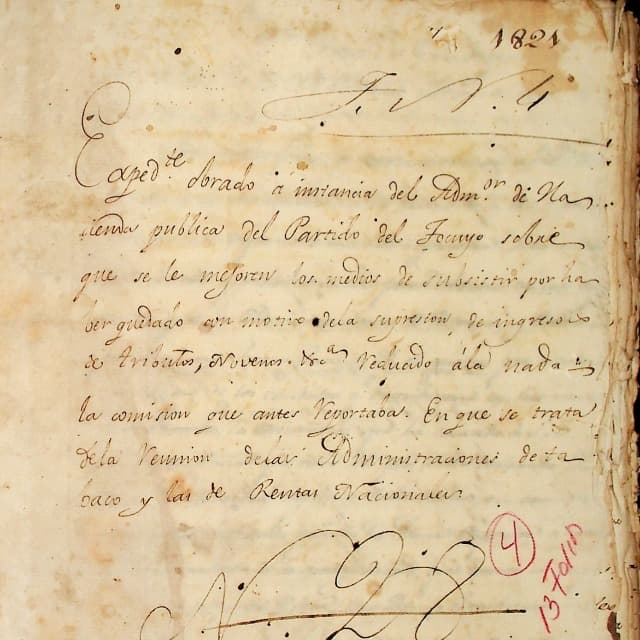 1821
F. N. 4
Exped.te obrado á instancia del Adm.or de Ha
cienda publica del Partido del Tocuyo sobre
que se le mejoren los medios de subsistir por ha
ber quedado con motivo dela supresion, de ingresos
de tributos, Novenos &a reducido á la nada
la comision que antes reportaba. En que se trata
dela reunion delas Administraciones de ta
baco y las de Rentas Nacionales.
4
13 Folios